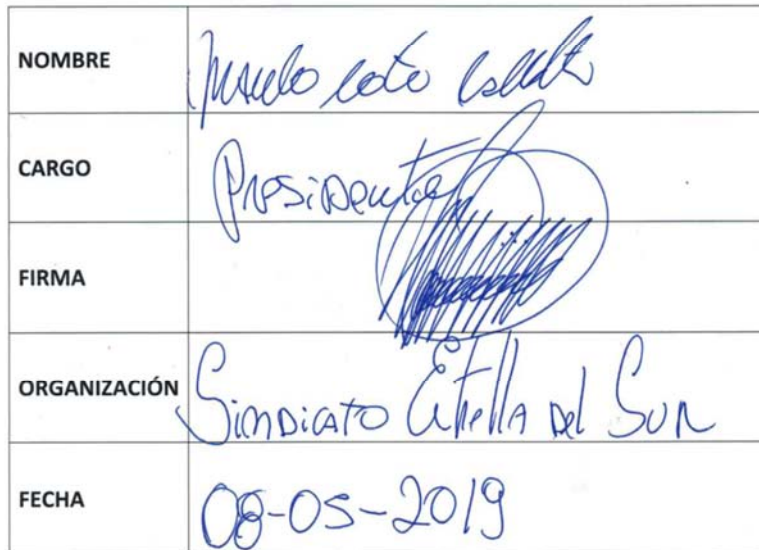 NOMBRE
CARGO Presidente
FIRMA
ORGANIZACIÓN Sindicato Estrella del Sur
FECHA 08-05-2019